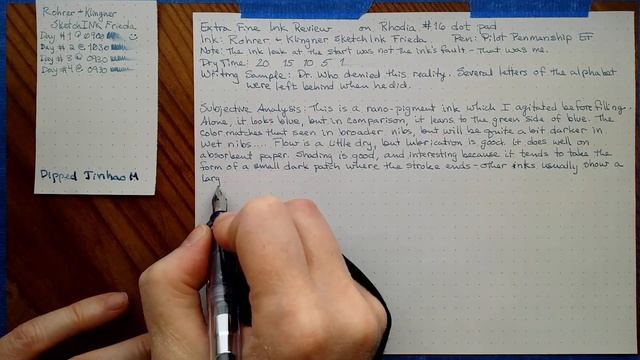 Rohrer + Klingner
SketchINK Frieda
Day #1 @ 0930
Day #2 @ 1030
Day #3 @ 0930
Day #4 @ 0930
Dipped Jinhao M
Extra Fine Ink Review on Rhodia #16 dot pad
Ink: Rohrer + Klingner SketchInk Frieda Pen: Pilot Penmanship EF
Note: The ink leak at the start was not the ink's fault - that was me.
Dry Time: 20 15 10 5 1
Writing Sample: Dr. Who denied this reality. Several letters of the alphabet
were left behind when he did.
Subjective Analysis: This is a nano-pigment ink which I agitated before filling.
Alone, it looks blue, but in comparison, it leans to the green side of blue. The
color matches that seen in broader nibs, but will be quite a bit darker in
wet nibs.... Flow is a little dry, but lubrication is good. It does well on
absorbent paper. Shading is good, and interesting because it tends to take the
form of a small dark patch where the stroke ends - other inks usually show a
larg